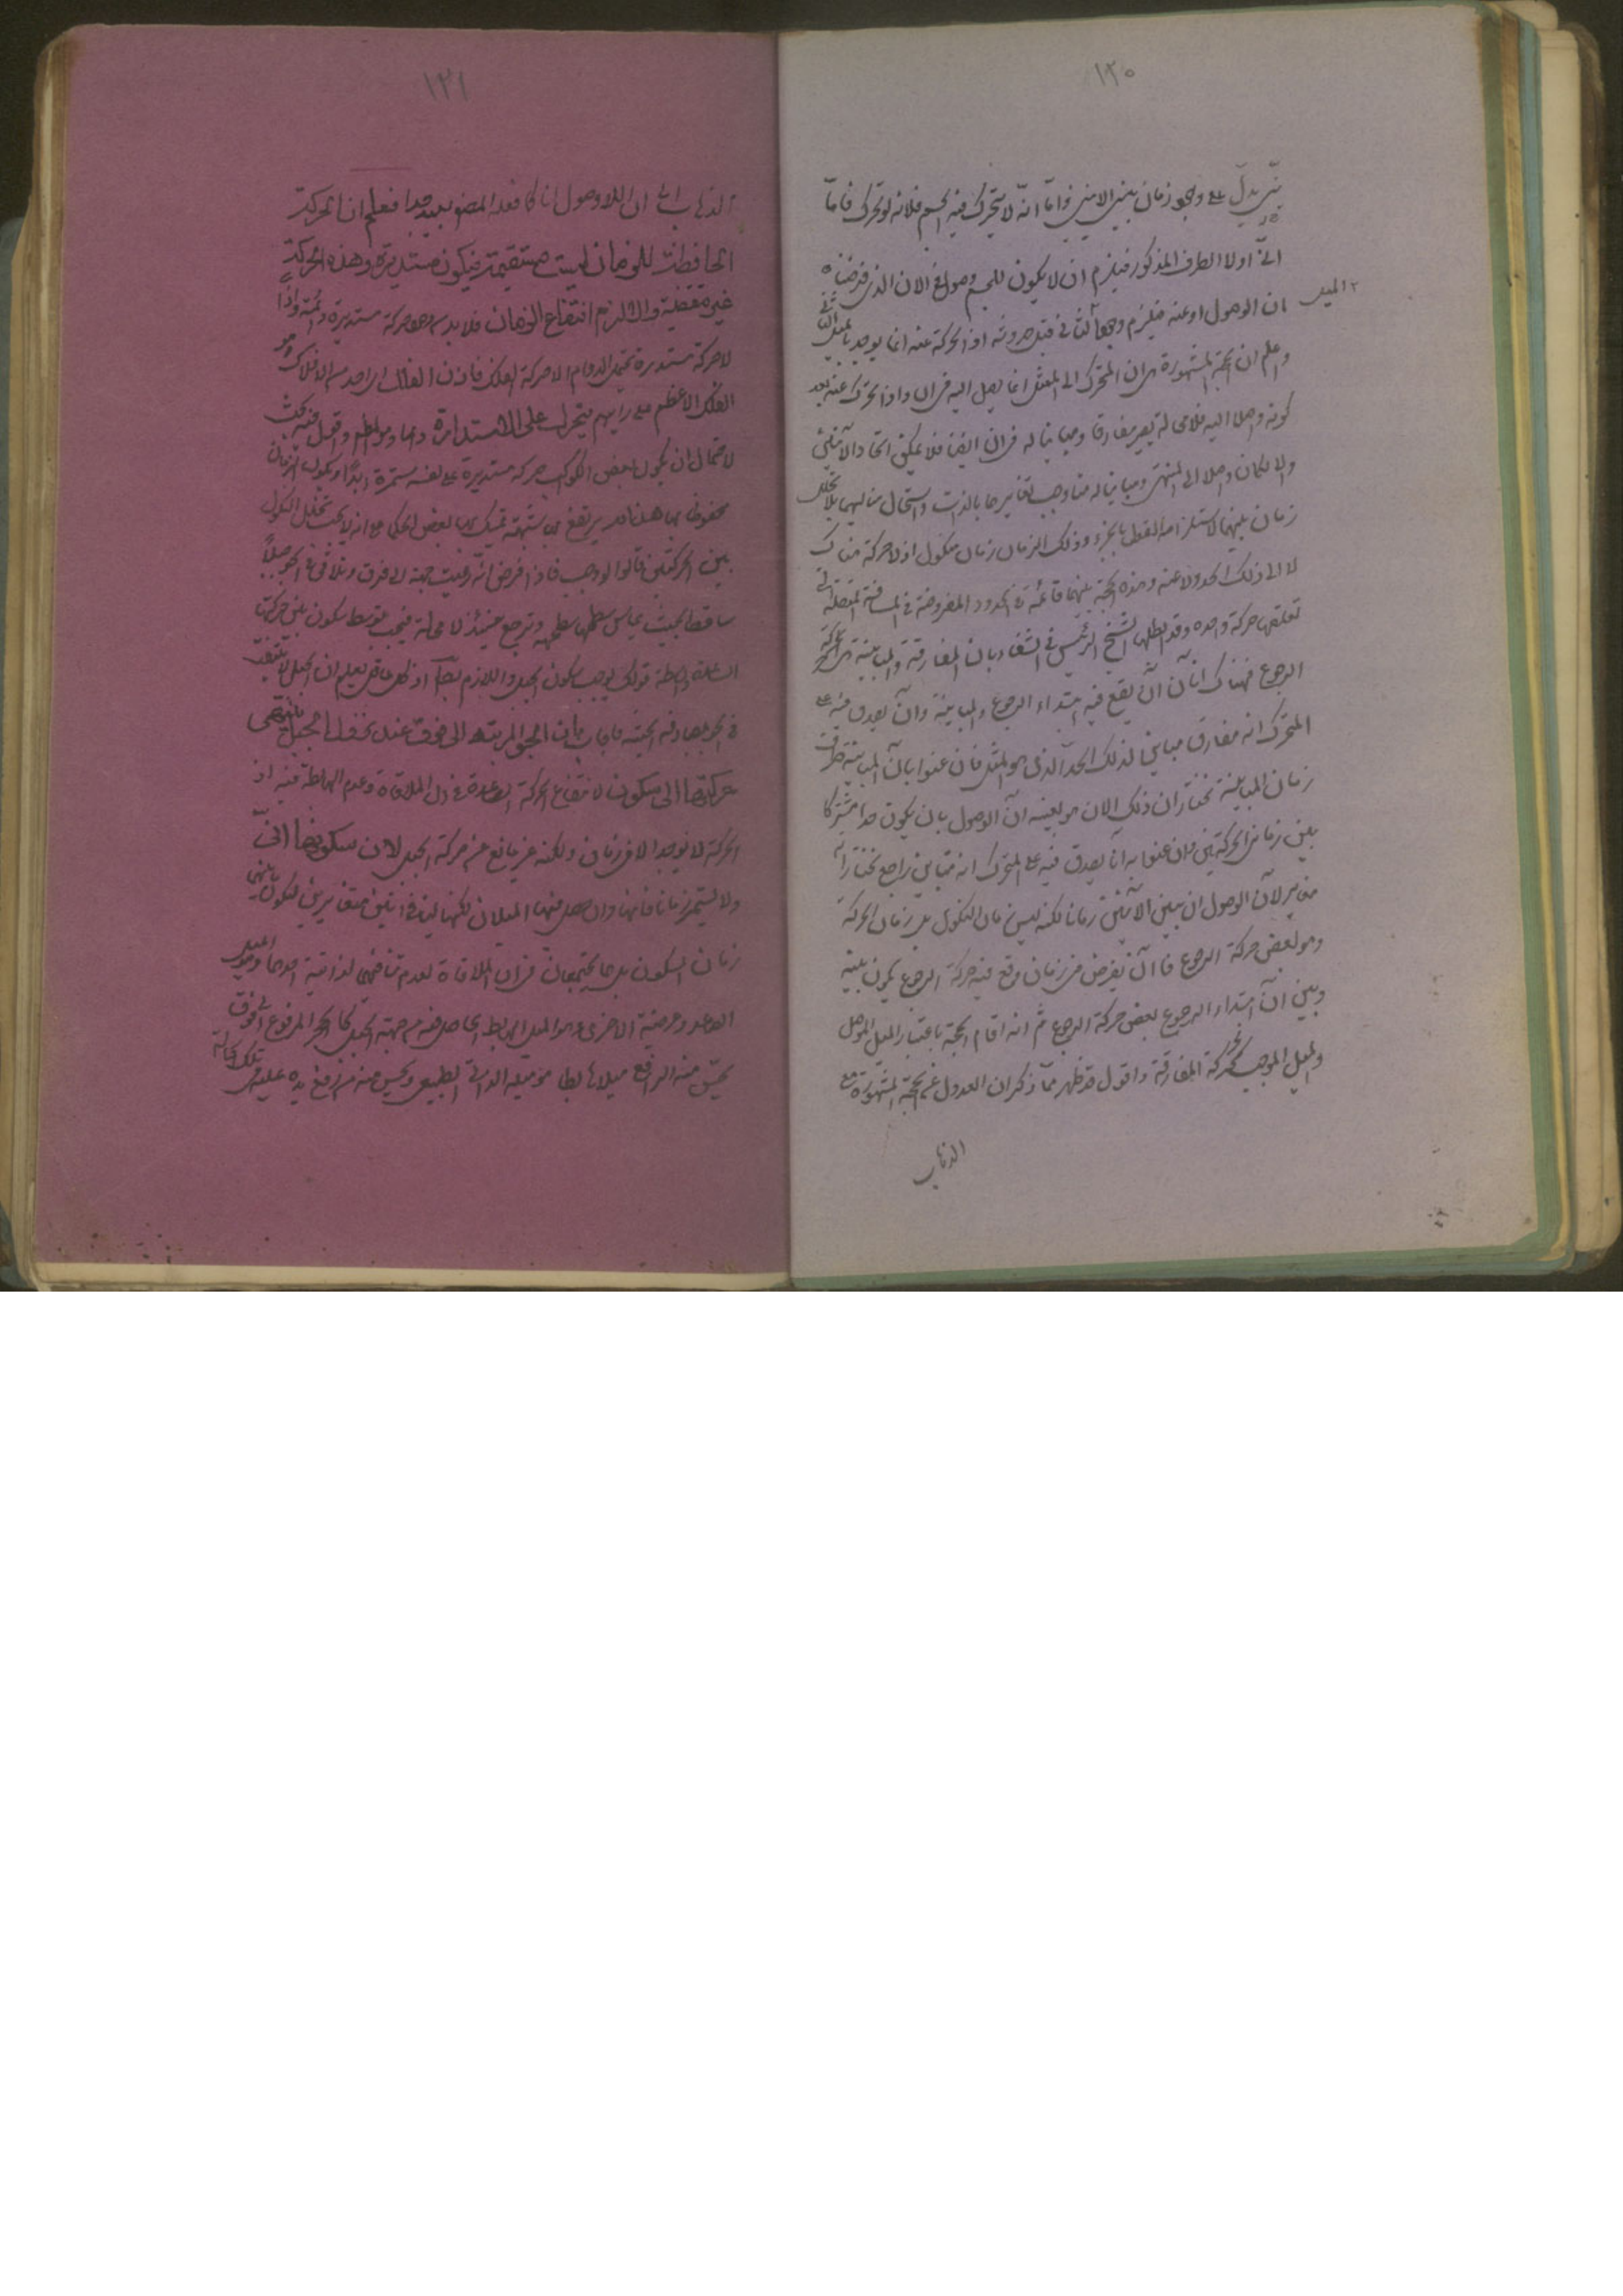 ١٢٠
يدل على وجود زمان بين الانين واما انه لا يتحرك فيه الجسم فلانه لو تحرك فاما
الى اولا الطرف المذكور فيلزم ان لا يكون للجسم وصول في الان الذي فرضناه
ان الوصول او عنه فيلزم وجود الميل الثاني قبل حدوثه اذ الحركة عنه انما يوجد بالميل الثاني
٢ الميل
واعلم ان الحجة المشهورة هي ان المتحرك الى المنتهى انما يصل اليه في ان واذا تحرك عنه بعد
كونه واصلا اليه فلا محالة يصير مفارقا ومباينا له في ان ايضا فلا يمكن اتحاد الآنين
والا لكان واصلا الى المنتهى ومباينا له معا وجب تغايرهما بالذات واستحال تتاليهما بلا تخلل
زمان بينهما لاستلزامه القول بالجزء وذلك الزمان زمان سكون اذ لا حركة هناك
لا الى ذلك الحد ولا عنه وهذه الحجة بعينها قائمة في الحدود المفروضة في المسافة المتصلة التي
تقطعها حركة واحدة وقد ابطلها الشيخ الرئيس في الشفاء بان المفارقة والمباينة هي حركة
الرجوع فهناك آنان آن يقع فيه ابتداء الرجوع والمباينة وآن يصدق فيه على
المتحرك انه مفارق مباين لذلك الحد الذي هو المنتهى فان عنوا بآن المباينة طرف
زمان المباينة نختار ان ذلك الان هو بعينه آن الوصول بان يكون حدا مشتركا
بين زماني الحركتين وان عنوا به آنا يصدق فيه على المتحرك انه مباين راجع نختار انه
مغاير لآن الوصول وان بين الآنين زمانا لكنه ليس زمان السكون بل زمان الحركة
وهو بعض حركة الرجوع فان كل آن يفرض في زمان وقع فيه حركة الرجوع يكون بينه
وبين آن ابتداء الرجوع بعض حركة الرجوع ثم انه اقام الحجة باعتبار الميل الموصل
والميل الموجب لحركة المفارقة واقول قد ظهر مما ذكر ان العدول عن الحجة المشهورة مع
الذهاب
١٢١
الذهاب الى ان اللاوصول اني كما فعله المصنف بعيد جدا فعلم ان الحركة
الحافظة للزمان ليست مستقيمة فيكون مستديرة وهذه الحركة
غير منقطعة والا لزم انقطاع الزمان فلا بد من وجود حركة مستديرة دائمة واذ
لا حركة مستديرة تحتمل الدوام الا حركة الفلك فاذن الفلك اي واحد من الافلاك وهو
الفلك الاعظم على رأيهم يتحرك على الاستدارة دائما وهو المطلوب واقول فيه بحث
لاحتمال ان يكون لبعض الكواكب حركة مستديرة على نفسه مستمرة ابدا ويكون الزمان
محفوظا بها هداية يرتفع بها شبهة تمسك بها بعض الحكماء على انه لا يجب تخلل السكون
بين الحركتين قالوا لو وجب فاذا فرض انه رميت حبة الى فوق وتلاقي في الجو جبلا
ساقطا بحيث يماس سطحها سطحه وترجع حينئذ لا محالة فيجب توسط سكون بين حركتها
الصاعدة والهابطة فذلك يوجب سكون الجبل واللازم بط اذ كل عاقل يعلم ان الجبل لا يقف
في الجو بمصادفة الحبة فاجاب بان الحبة المرمية الى فوق عند نزول الجبل تنتهي
حركتها الى سكون لانقطاع الحركة الصاعدة في ان الملاقاة وعدم الهابطة فيه اذ
الحركة لا توجد الا في زمان ولكنه غير مانع من حركة الجبل لان سكونها اني
ولا يستمر زمانا فانها وان حصل فيها الميلان لكنهما ليسا في انين متغايرين ليكون بينهما
زمان السكون بل هما يجتمعان في ان الملاقاة لعدم تنافيهما لذاتية احدهما وهو الميل
الصاعد وعرضية الاخرى وهو الميل الهابط الحاصل فيه من جهة الجبل كما الحجر المرفوع الى فوق
يحس منه الرافع ميلا هابطا هو ميله الذاتي الطبيعي ويحس منه من وضع يده عليه في تلك الحالة